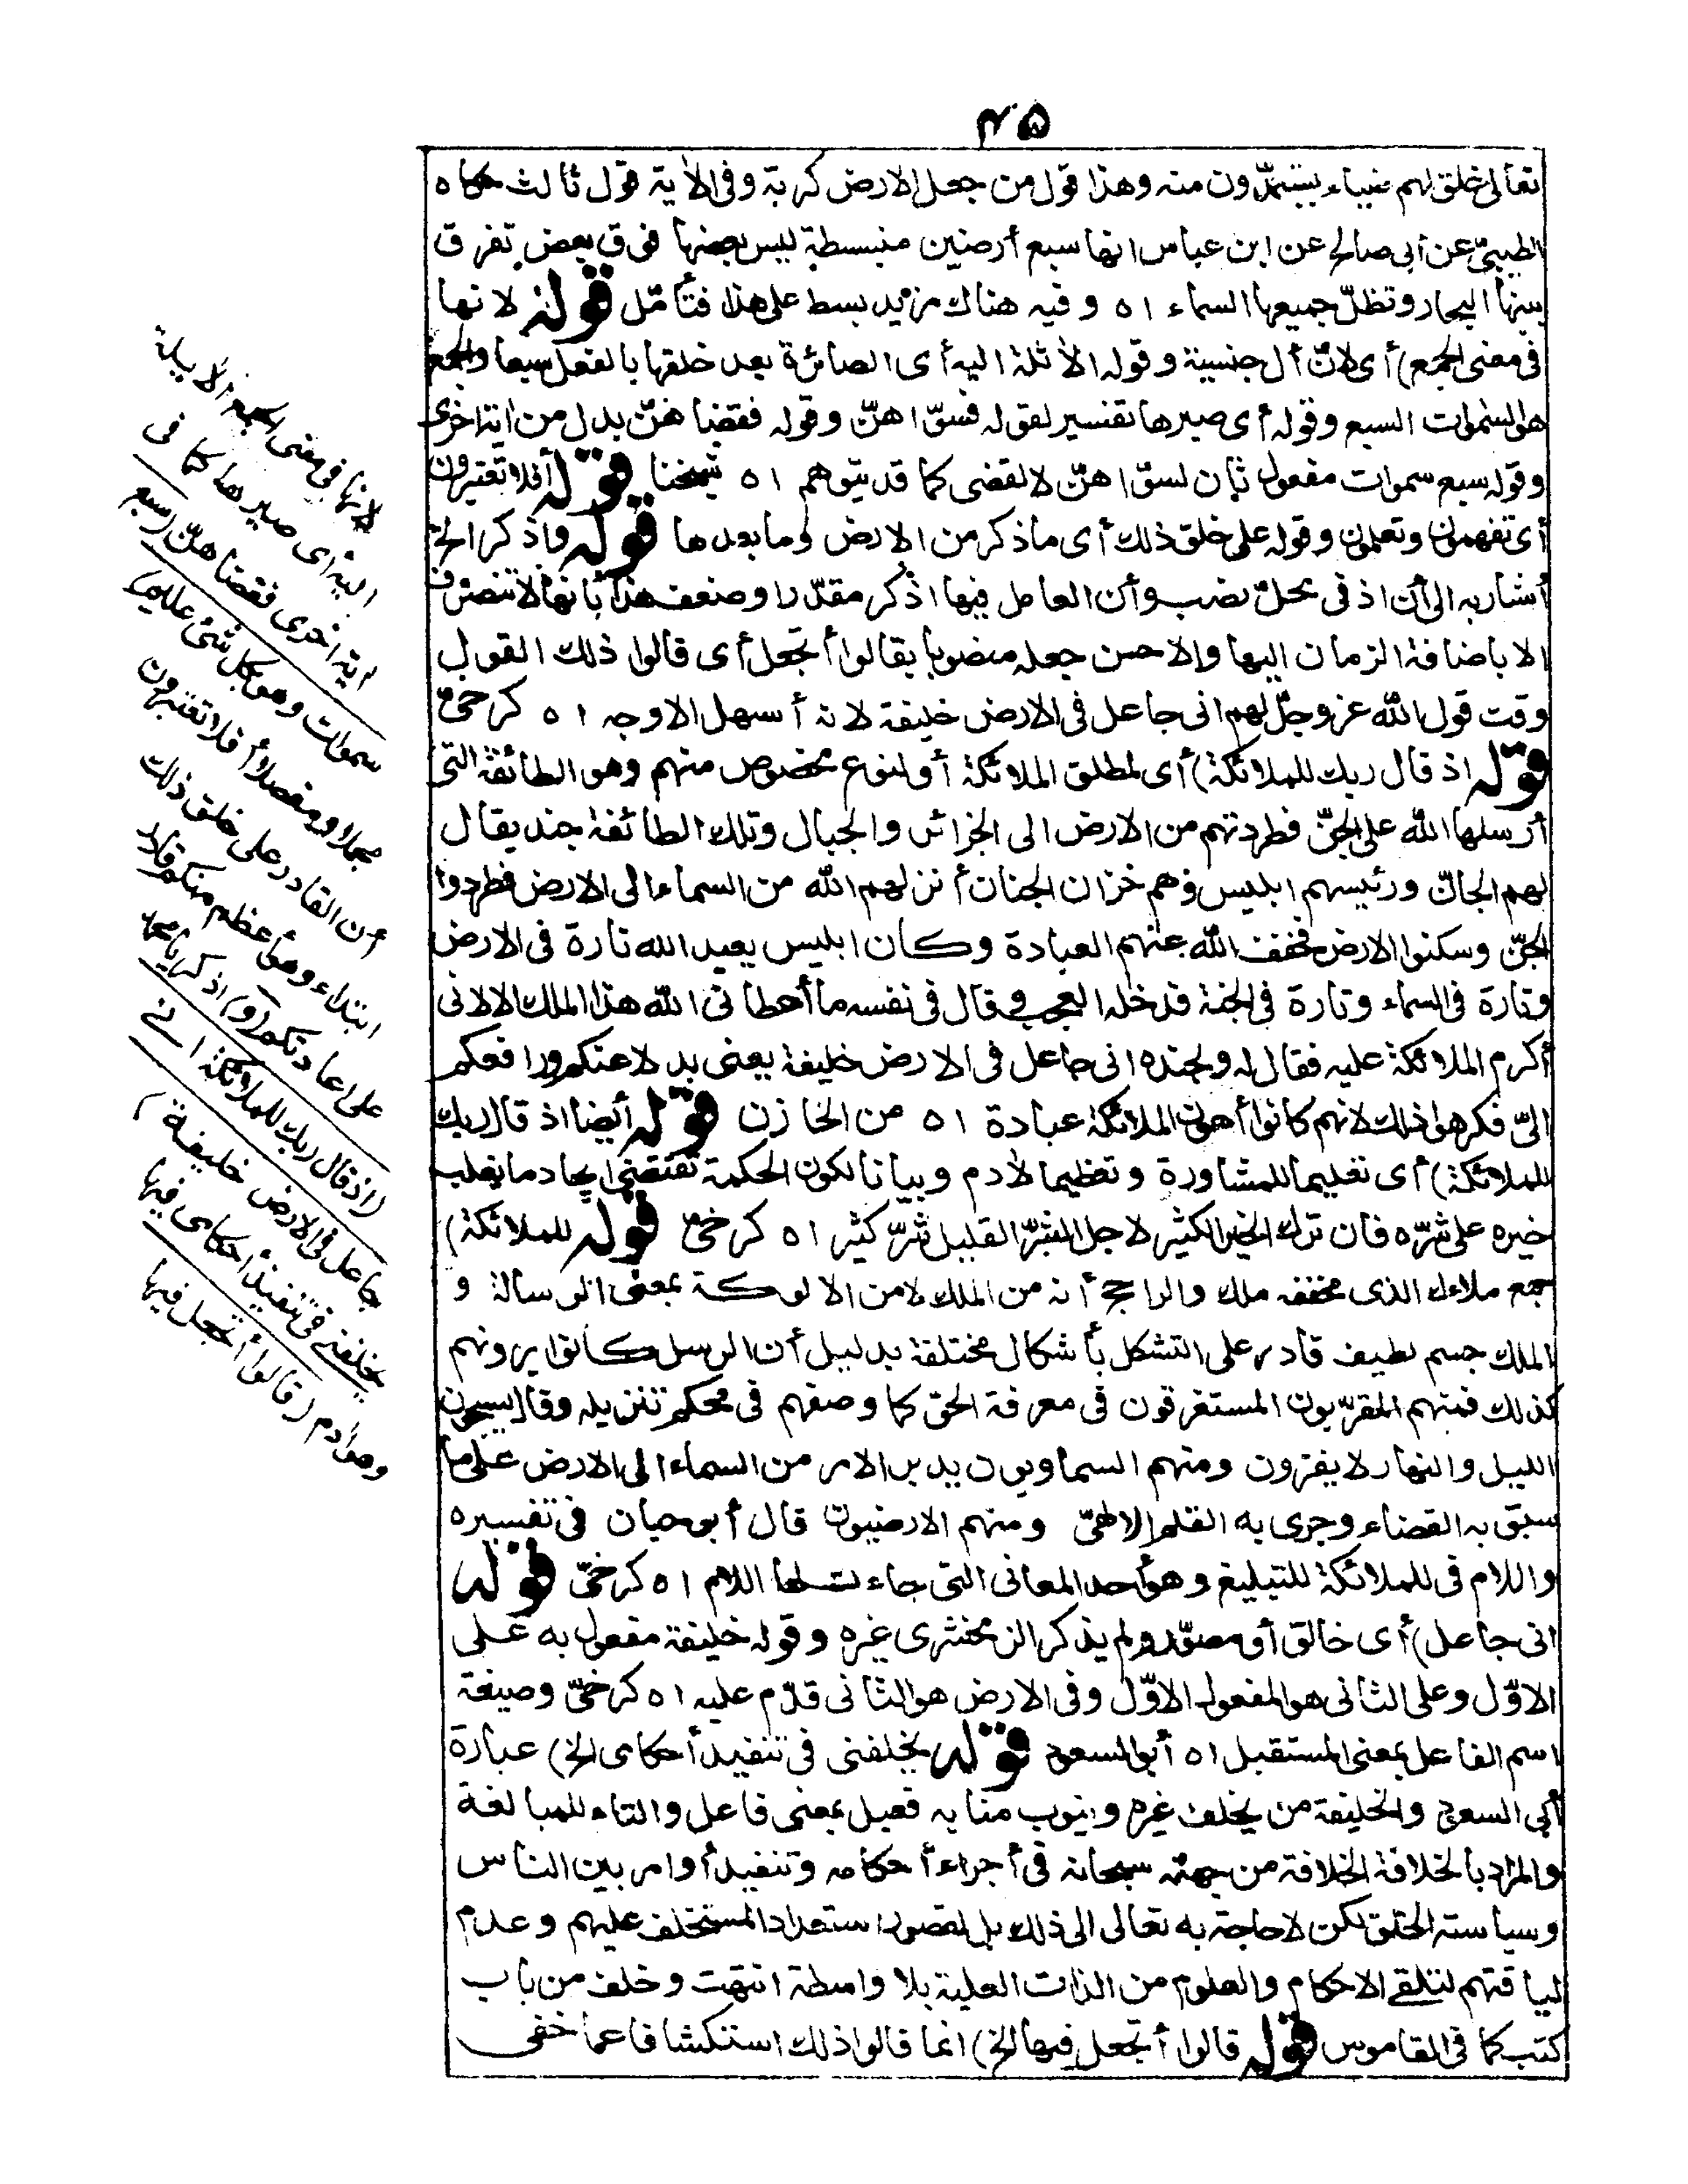 ٤٥
تعالى خلق لهم ضياء يستمدّون منه وهذا قول من جعل الارض كرية وفى الاٰية قول ثالث حكاه
الطيبىّ عن أبى صالح عن ابن عباس انها سبع أرضين منبسطة ليس بعضها فوق بعض تفرق
بينها البحار وتظلّ جميعها السماء ا ه وفيه هناك مزيد بسط على هذا فتأمّل قوله لانها
فى معنى الجمع) أى لانّ أل جنسية وقوله الاٰئلة اليه أى الصائرة بعد خلقها بالفعل سبعا والجمع
هو السمٰوات السبع وقوله أى صيرها تفسير لقوله فسوّاهنّ وقوله فقضاهنّ بدل من اٰية اخرى
وقوله سبع سموات مفعول ثان لسوّاهنّ لا لقضى كما قد يتوهم ا ه شيخنا قوله أفلا تعتبرون
أى تفهمون وتعلمون وقوله على خلق ذلك أى ما ذكر من الارض وما بعدها قوله واذكر الخ
أشار به الى أن اذ فى محلّ نصب وأن العامل فيها اذكر مقدّرا وضعف هذا بأنها لا تتصرّف
الا باضافة الزمان اليها والاحسن جعله منصوبا بقالوا أتجعل أى قالوا ذلك القول
وقت قول الله عز وجلّ لهم انى جاعل فى الارض خليفة لانه أسهل الاوجه ا ه كرخىّ
قوله اذ قال ربك للملائكة) أى لمطلق الملائكة أو لنوع مخصوص منهم وهو الطائفة التى
أرسلها الله على الجنّ فطردتهم من الارض الى الجزائر والجبال وتلك الطائفة جند يقال
لهم الجانّ ورئيسهم ابليس وهم خزان الجنان أنزلهم الله من السماء الى الارض فطردوا
الجنّ وسكنوا الارض فخفف الله عنهم العبادة وكان ابليس يعبد الله تارة فى الارض
وتارة فى السماء وتارة فى الجنة فدخله العجب وقال فى نفسه ما أعطانى الله هذا الملك الا لانى
أكرم الملائكة عليه فقال له ولجنده انى جاعل فى الارض خليفة يعنى بدلا عنكم ورافعكم
الىّ فكرهوا ذلك لانهم كانوا أهون الملائكة عبادة ا ه من الخازن قوله أيضا اذ قال ربك
للملائكة) أى تعليما للمشاورة وتعظيما لاٰدم وبيانا لكون الحكمة تقتضى ايجاد ما يغلب
خيره على شرّه فان ترك الخير الكثير لاجل الشرّ القليل شرّ كثير ا ه كرخىّ قوله للملائكة)
جمع ملاءك الذى مخففه ملك والراجح أنه من الملك لا من الالوكة بمعنى الرسالة و
الملك جسم لطيف قادر على التشكل بأشكال مختلفة بدليل أن الرسل كانوا يرونهم
كذلك فمنهم المقرّبون المستغرقون فى معرفة الحق كما وصفهم فى محكم تنزيله وقال يسبحون
الليل والنهار لا يفترون ومنهم السماويون يدبر الامر من السماء الى الارض على ما
سبق به القضاء وجرى به القلم الالهىّ ومنهم الارضيون قال أبو حيان فى تفسيره
واللام فى للملائكة للتبليغ وهو أحد المعانى التى جاءت لها اللام ا ه كرخىّ قوله
انى جاعل) أى خالق أو مصوّر ولم يذكر الزمخشرى غيره وقوله خليفة مفعول به على
الاوّل وعلى الثانى هو المفعول الاوّل وفى الارض هو الثانى قدّم عليه ا ه كرخىّ وصيغة
اسم الفاعل بمعنى المستقبل ا ه أبو السعود قوله يخلفنى فى تنفيذ أحكامى الخ) عبارة
أبى السعود والخليفة من يخلف غيره وينوب منابه فعيل بمعنى فاعل والتاء للمبالغة
والمراد بالخلافة الخلافة من جهته سبحانه فى أجراء أحكامه وتنفيذ أوامره بين الناس
وسياسته الخلق لكن لا حاجة به تعالى الى ذلك بل لقصور استعداد المستخلف عليهم وعدم
لياقتهم لتلقى الاحكام والعلوم من الذات العلية بلا واسطة انتهت وخلف من باب
كتب كما فى القاموس قوله قالوا أتجعل فيها الخ) انما قالوا ذلك استكشافا عما خفى
لانها فى معنى الجمع الاٰيلة
اليه أى صيرها كما فى
اٰية اخرى فقضاهنّ (سبع
سموات وهو بكل شئ عليم)
مجملا ومفصلا أفلا تعتبرون
أن القادر على خلق ذلك
ابتداء وهو أعظم منكم قادر
على اعادتكم (و) اذكر يا محمد
(اذ قال ربك للملائكة انى
جاعل فى الارض خليفة)
يخلفنى فى تنفيذ أحكامى فيها
وهو اٰدم (قالوا أتجعل فيها